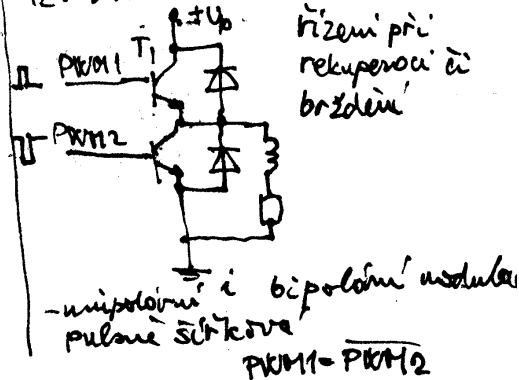 +Up
T1
řízení při
rekuperaci či
brždění
PWM1
PWM2
-unipolární i bipolární
pulsně šířková
PWM1 = P̅W̅M̅2̅